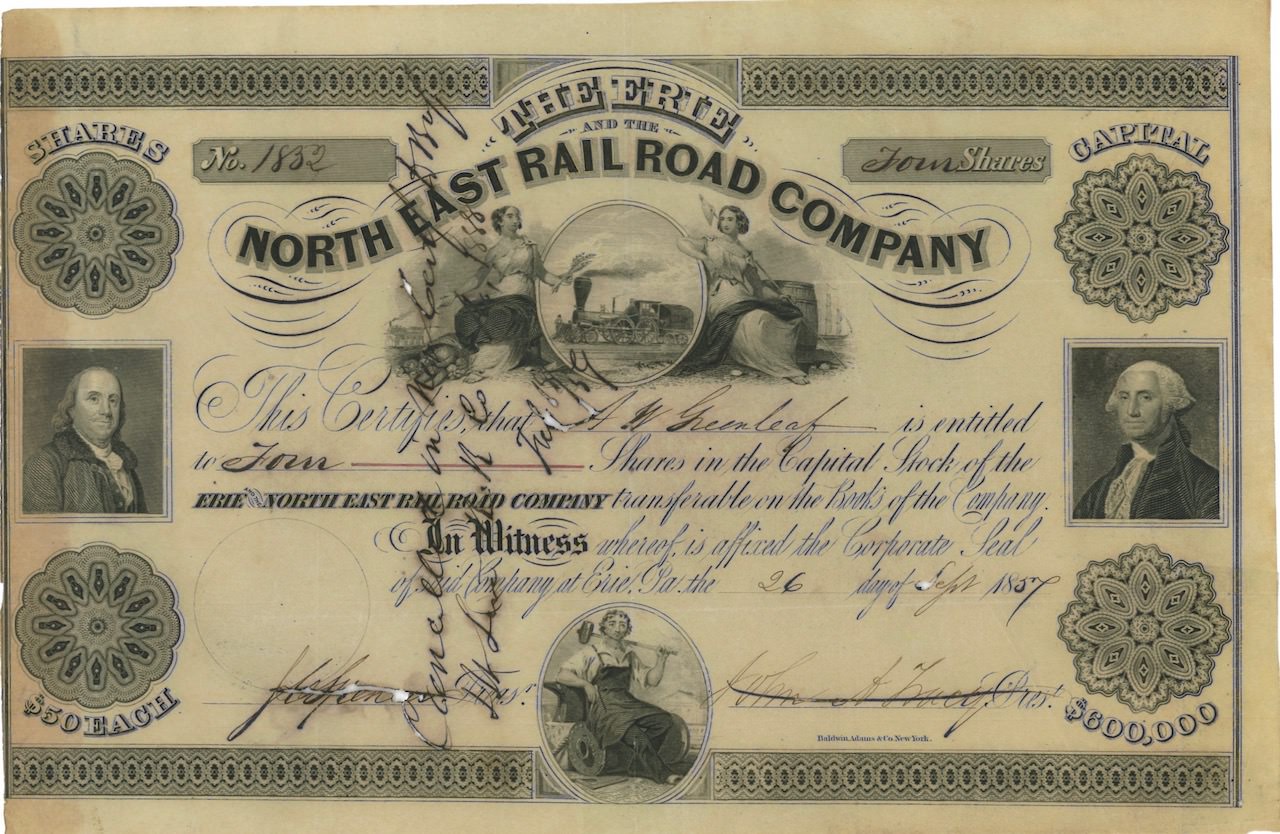 THE ERIE
AND THE
NORTH EAST RAIL ROAD COMPANY
SHARES
No. 1832
Four Shares
CAPITAL
This Certifies, that A W Greenleaf is entitled
to Four Shares in the Capital Stock of the
ERIE AND NORTH EAST RAIL ROAD COMPANY transferable on the Books of the Company.
In Witness whereof, is affixed the Corporate Seal
of said Company at Erie, Pa. the 26 day of Sept 1857
Treasr. John A Tracy Prest.
$50 EACH
$600,000
Baldwin, Adams & Co. New York.
Cancelled in
July